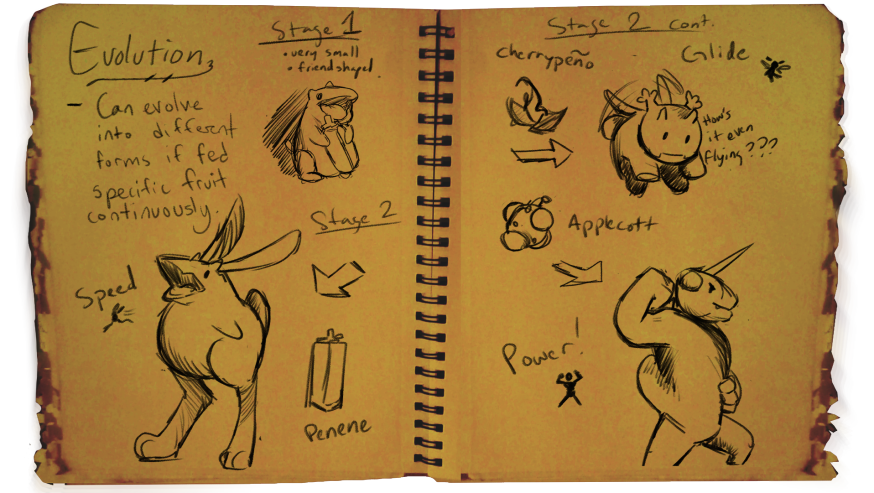 Evolution
- Can evolve
into different
forms if fed
specific fruit
continuously.
Stage 1
• very small
• friendshaped.
Stage 2
Speed
Penene
Stage 2 cont.
Cherrypeño
Glide
How's
it even
flying???
Applecott
Power!